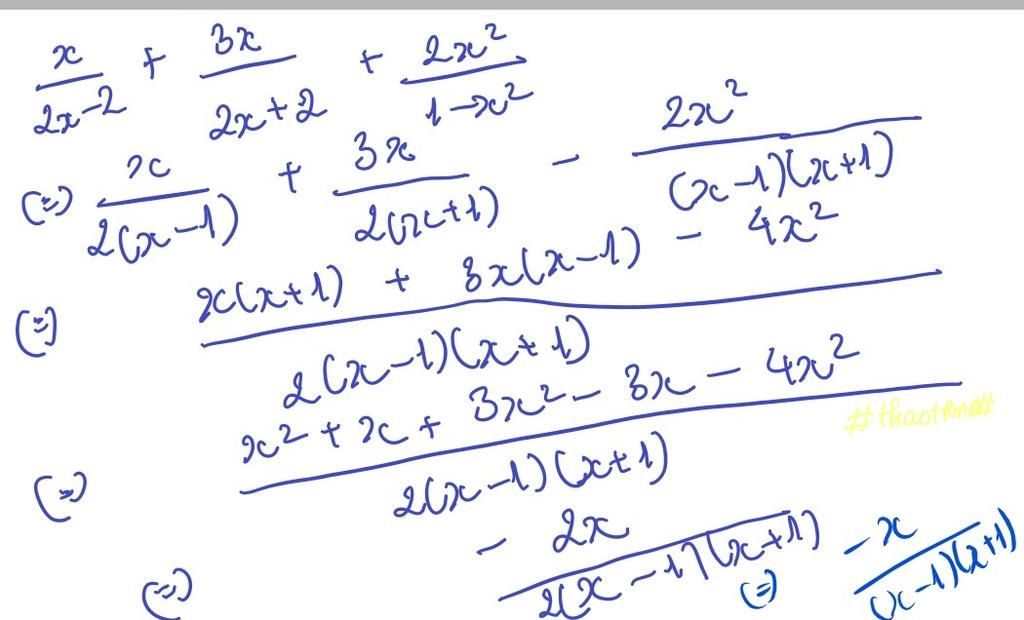 x/(2x-2) + 3x/(2x+2) + 2x²/(1-x²)
(=) x/(2(x-1)) + 3x/(2(x+1)) - 2x²/((x-1)(x+1))
(=) (x(x+1) + 3x(x-1) - 4x²)/(2(x-1)(x+1))
(=) (x² + x + 3x² - 3x - 4x²)/(2(x-1)(x+1))
(=) - 2x/(2(x-1)(x+1)) (=) -x/((x-1)(x+1))